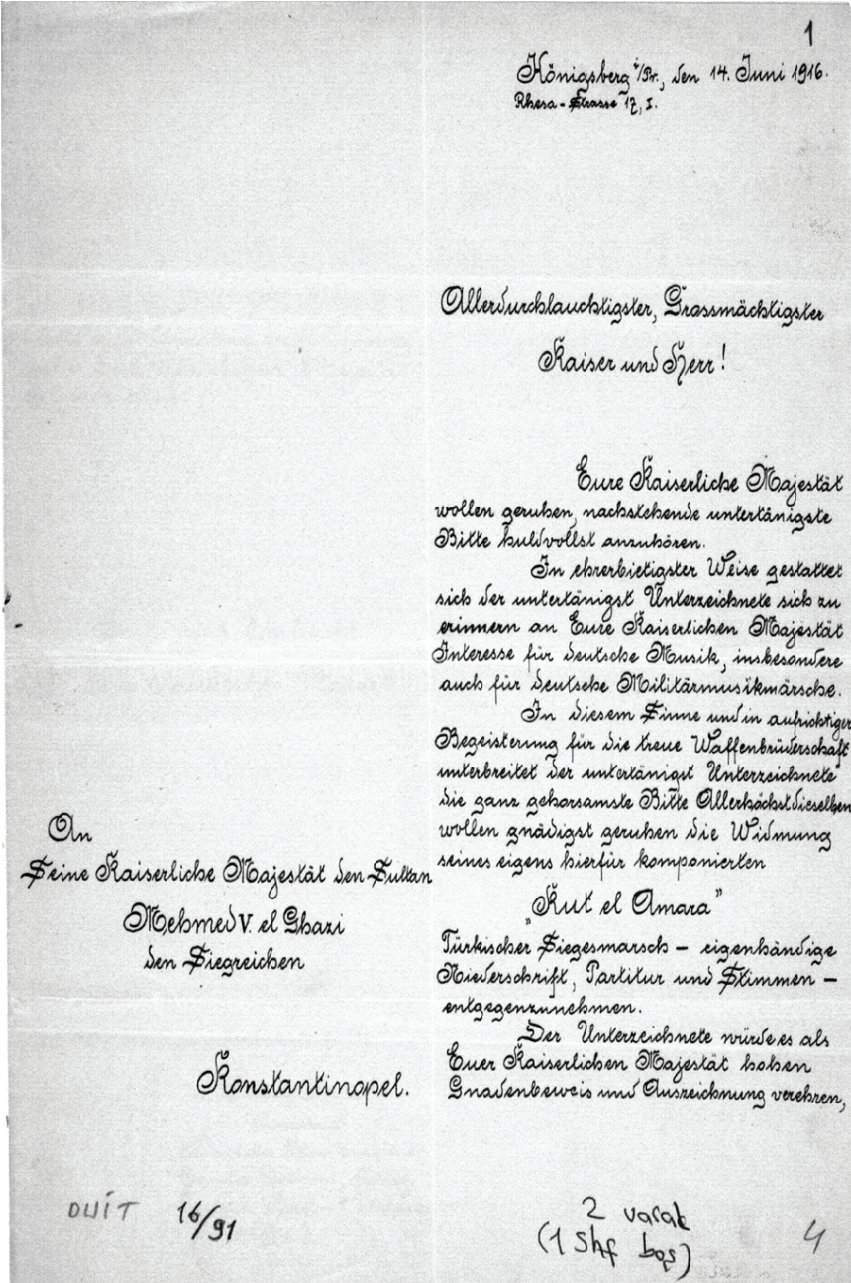 1
Königsberg i/Pr., den 14. Juni 1916.
Rhesa-Strasse 17, I.
Allerdurchlauchtigster, Grossmächtigster
Kaiser und Herr!
Eure Kaiserliche Majestät
wollen geruhen, nachstehende untertänigste
Bitte huldvollst anzuhören.
In ehrerbietigster Weise gestattet
sich der untertänigst Unterzeichnete sich zu
erinnern an Eure Kaiserlichen Majestät
Interesse für deutsche Musik, insbesondere
auch für deutsche Militärmusikmärsche.
In diesem Sinne und in aufrichtiger
Begeisterung für die treue Waffenbrüderschaft
unterbreitet der untertänigst Unterzeichnete
die ganz gehorsamste Bitte Allerhöchstdieselben
wollen gnädigst geruhen die Widmung
seines eigens hierfür komponierten
„Kut el Amara”
Türkischer Siegesmarsch – eigenhändige
Niederschrift, Partitur und Stimmen –
entgegenzunehmen.
Der Unterzeichnete würde es als
Euer Kaiserlichen Majestät hohen
Gnadenbeweis und Auszeichnung verehren,
An
Seine Kaiserliche Majestät den Sultan
Mehmed V. el Ghazi
den Siegreichen
Konstantinopel.
DUİT 16/91
2 varak
(1 shf boş)
4